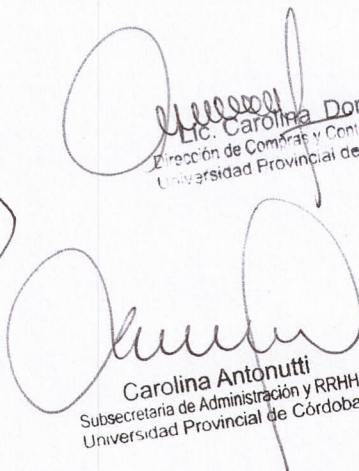 Lic. Carolina
Dirección de Compras y
Universidad Provincial de
Carolina Antonutti
Subsecretaria de Administración y RRHH
Universidad Provincial de Córdoba